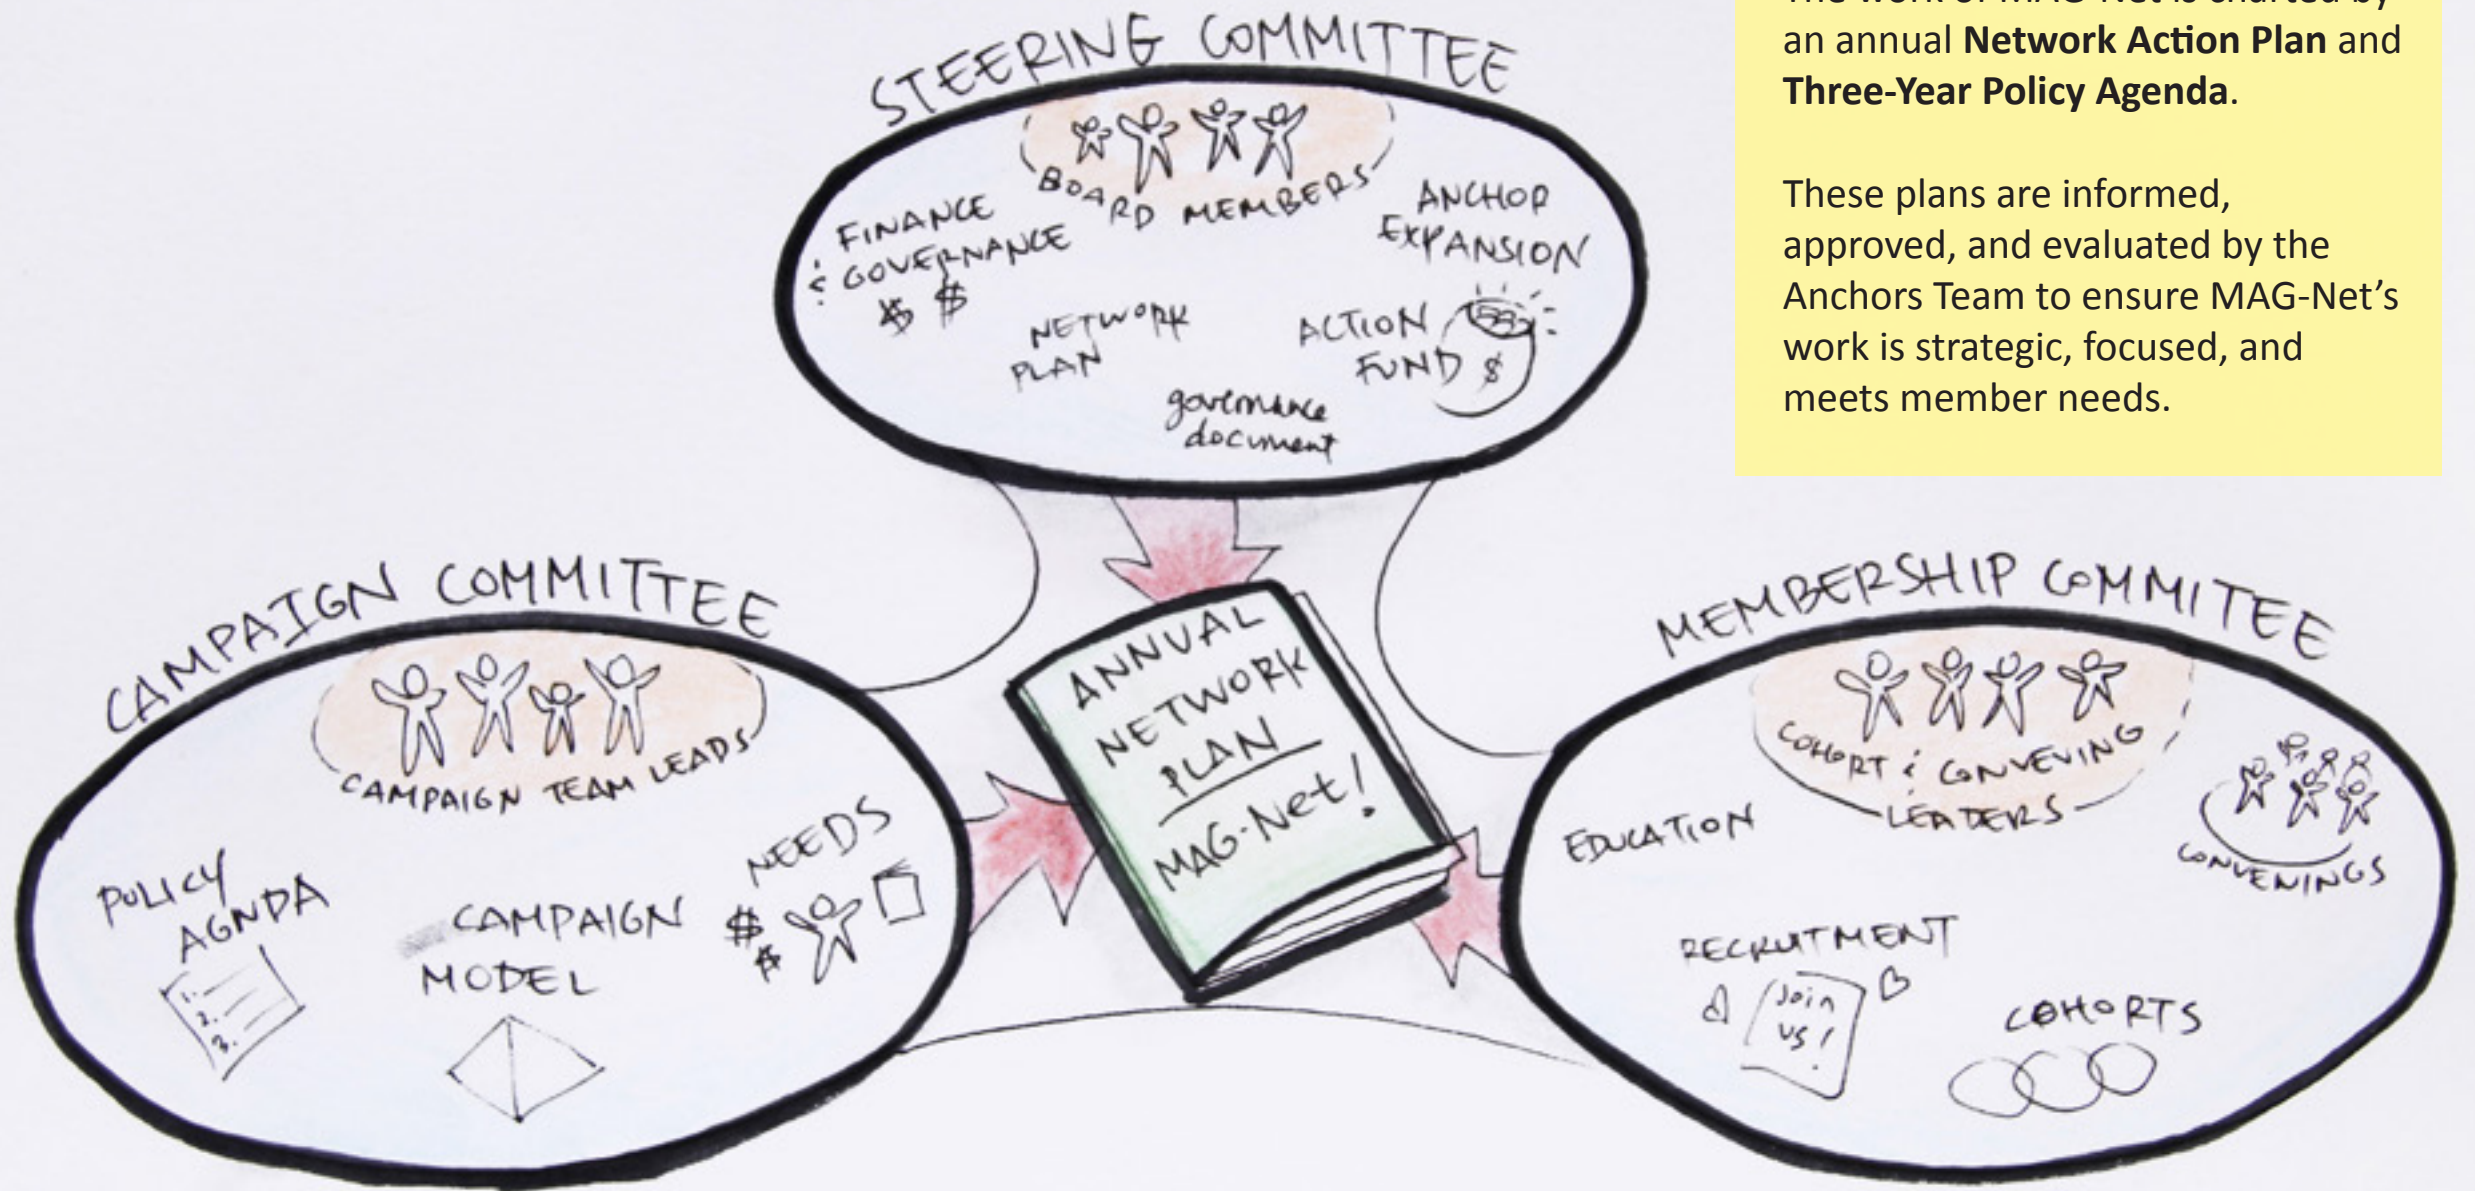 STEERING COMMITTEE
BOARD MEMBERS
FINANCE
& GOVERNANCE
$ $
ANCHOR
EXPANSION
NETWORK
PLAN
ACTION
FUND $
governance
document
The work of MAG-Net is charted by
an annual Network Action Plan and
Three-Year Policy Agenda.
These plans are informed,
approved, and evaluated by the
Anchors Team to ensure MAG-Net's
work is strategic, focused, and
meets member needs.
CAMPAIGN COMMITTEE
CAMPAIGN TEAM LEADS
POLICY
AGNDA
1.
2.
3.
CAMPAIGN
MODEL
NEEDS
$
$
ANNUAL
NETWORK
PLAN
MAG-Net!
MEMBERSHIP COMMITEE
COHORT & CONVENING
LEADERS
EDUCATION
CONVENINGS
RECRUITMENT
Join
us!
COHORTS